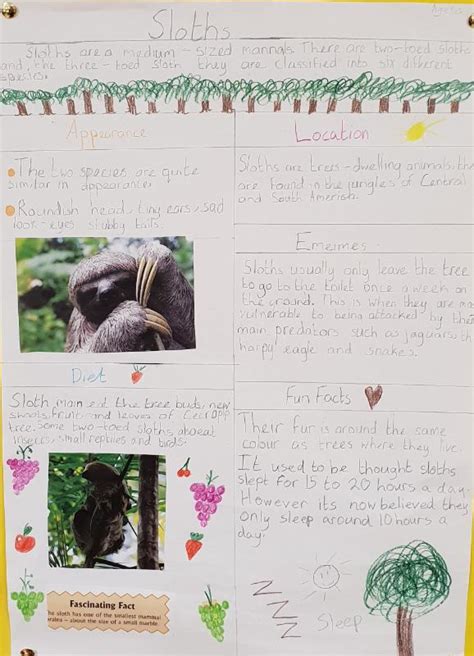 Sloths
Sloths are a medium - sized mannals. There are two-toed sloths
and, the three-toed sloth they are classified into six different
species.
Appearance
The two species are quite
similar in appearance.
Roundish head, tiny ears, sad
look-eyes stubby tails.
Diet
Sloth main eat the tree buds, new
shoots, fruit and leaves of
tree. Some two-toed sloths, also eat
insects, small reptiles and birds.
Fascinating Fact
The sloth has one of the smallest mammal
brains - about the size of a small marble.
Location
Sloths are trees-dwelling animals, th
are found in the jungles of Central
and South America.
Emeimes.
Sloths usually only leave the tree
to go to the toilet once a week on
the ground. This is when they are mo
vulnerable to being attacked by the
main predators such as jaguars, th
haipy eagle and snakes.
Fun Facts
Their fur is around the same
colour as trees where they live.
It used to be thought sloths
slept for 15 to 20 hours a day.
However its now believed they
only sleep around 10 hours a
day.
Z
Z
Z
Z
Sleep